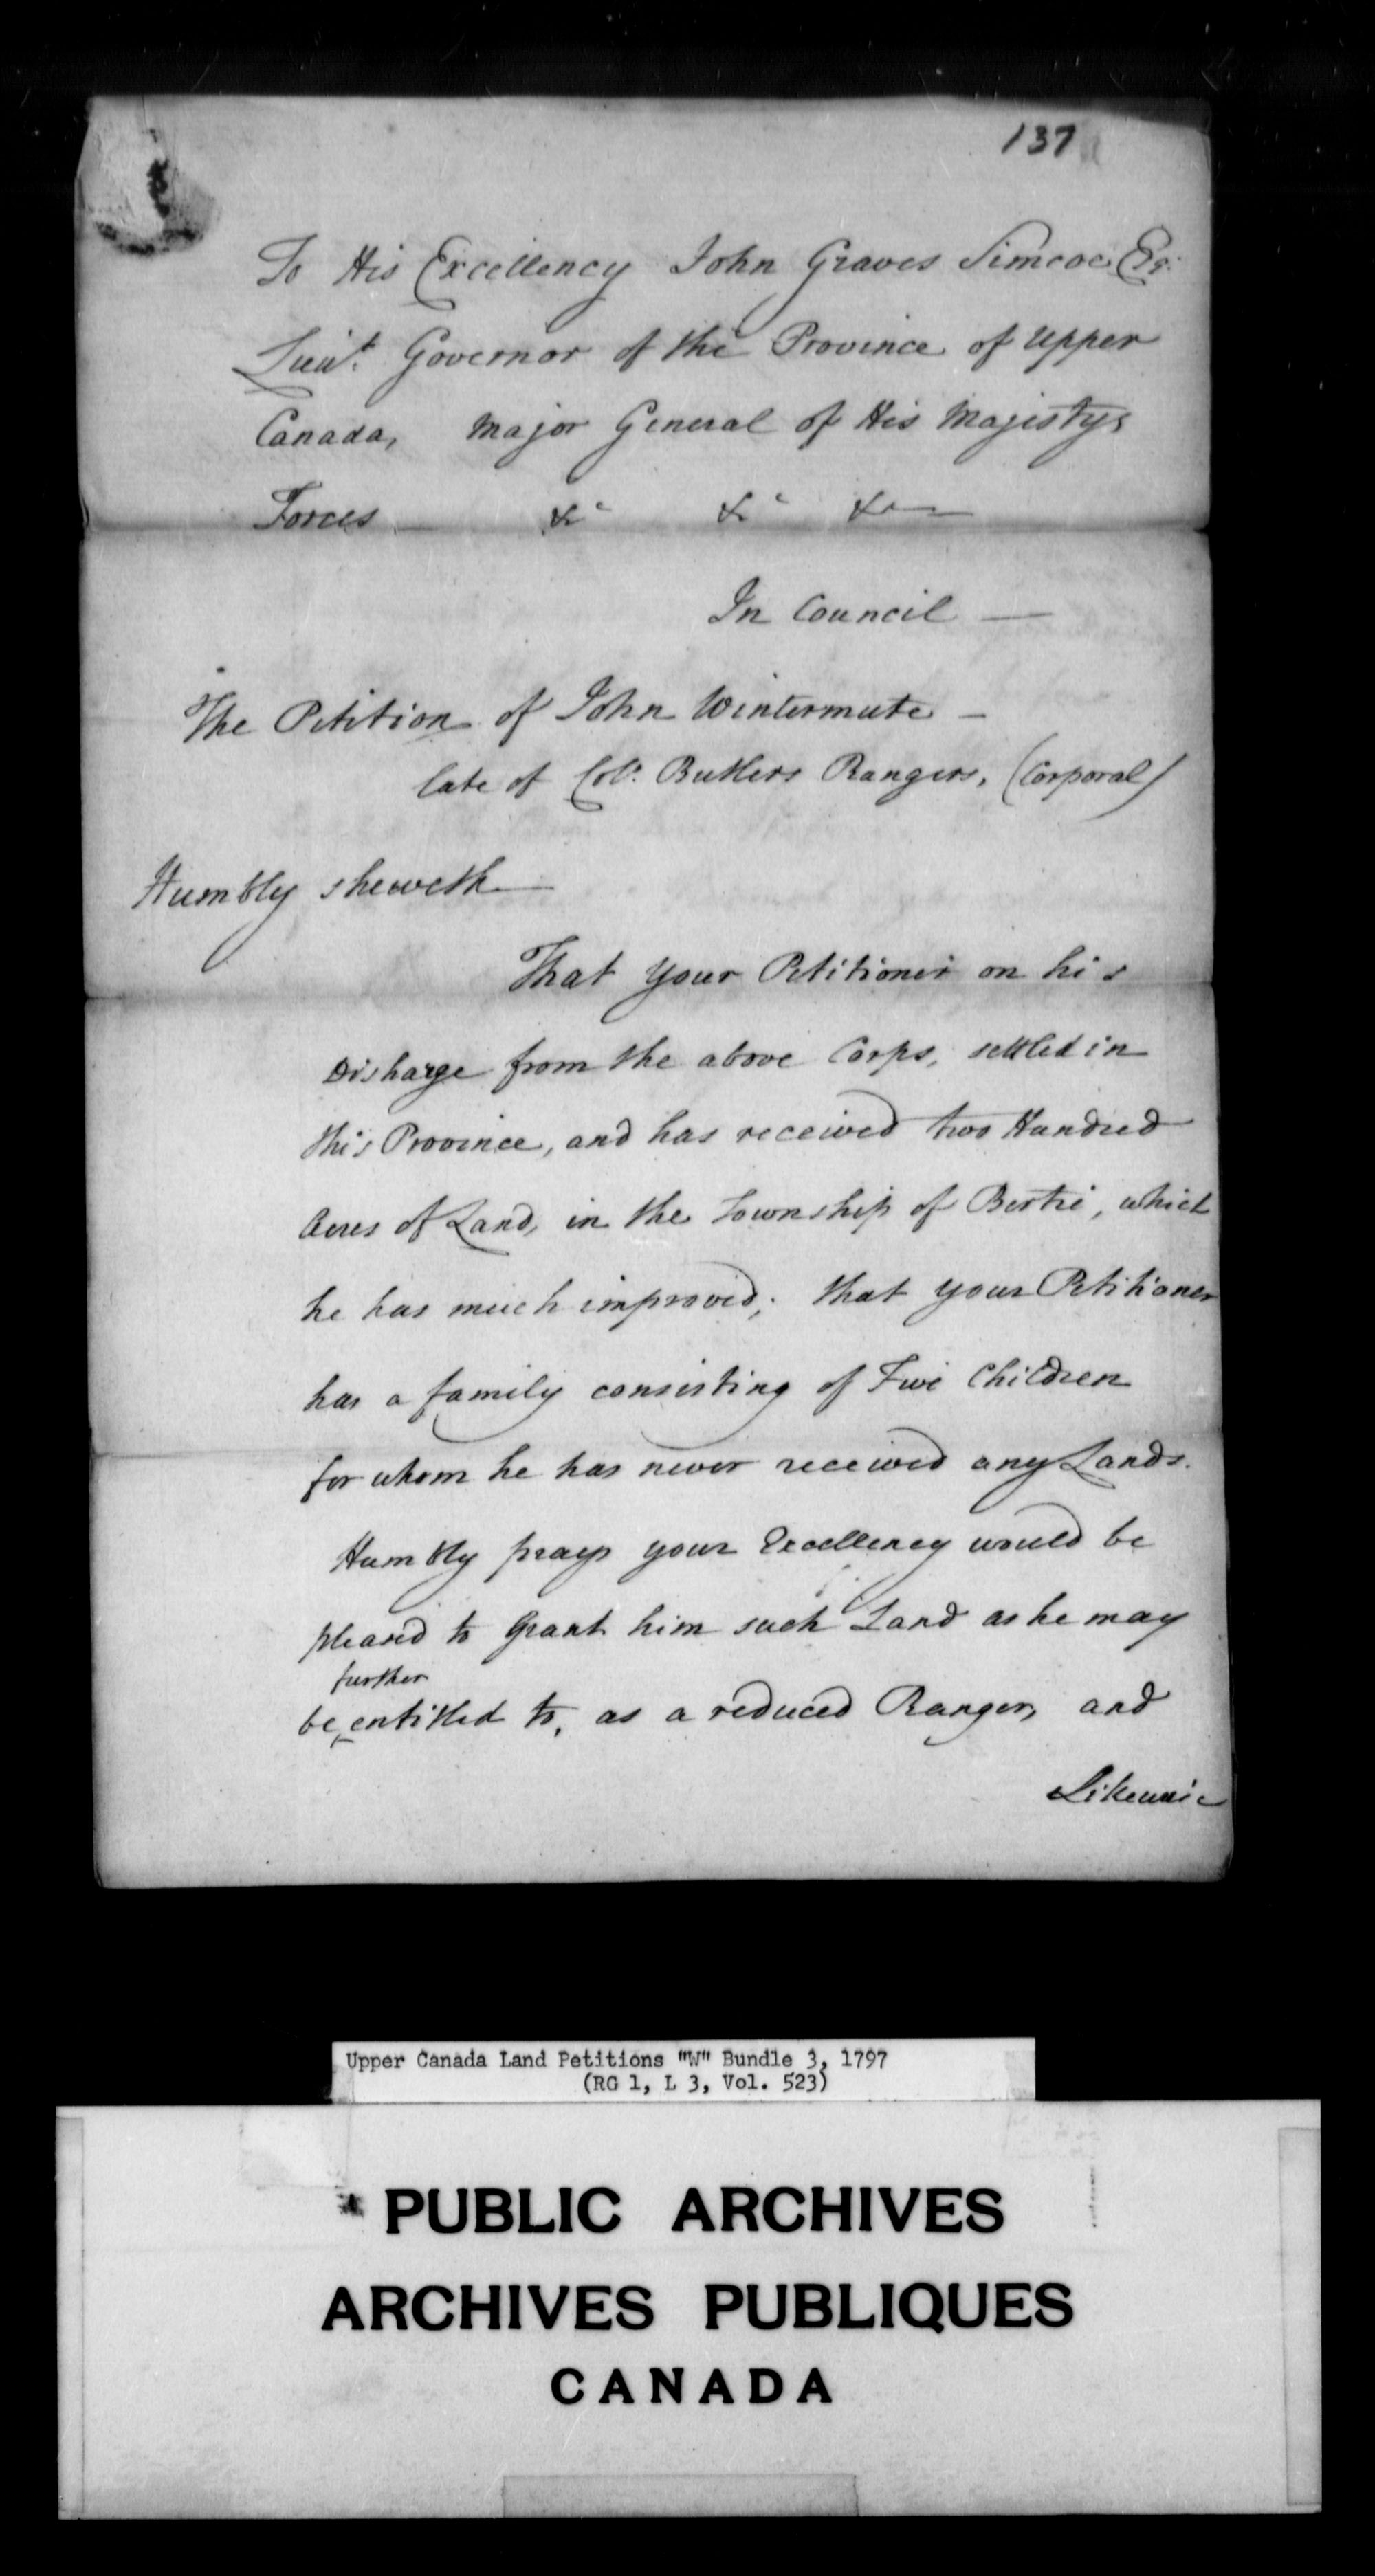 137
To His Excellency John Graves Simcoe Esqr.
Lieut. Governor of the Province of Upper
Canada, Major General of His Majestys
Forces — &c &c &c —
In Council —
The Petition of John Wintermute —
late of Col. Butlers Rangers, (Corporal)
Humbly sheweth —
That your Petitioner on his
Disharge from the above Corps, settled in
this Province, and has received two Hundred
Acres of Land, in the Township of Bertie, which
he has much improved; that your Petitioner
has a family consisting of Five Children
for whom he has never received any Lands.
Humbly prays your Excellency would be
pleased to Grant him such Land as he may
further
be entitled to, as a reduced Ranger, and
Likewise
Upper Canada Land Petitions "W" Bundle 3, 1797
(RG 1, L 3, Vol. 523)
PUBLIC ARCHIVES
ARCHIVES PUBLIQUES
CANADA